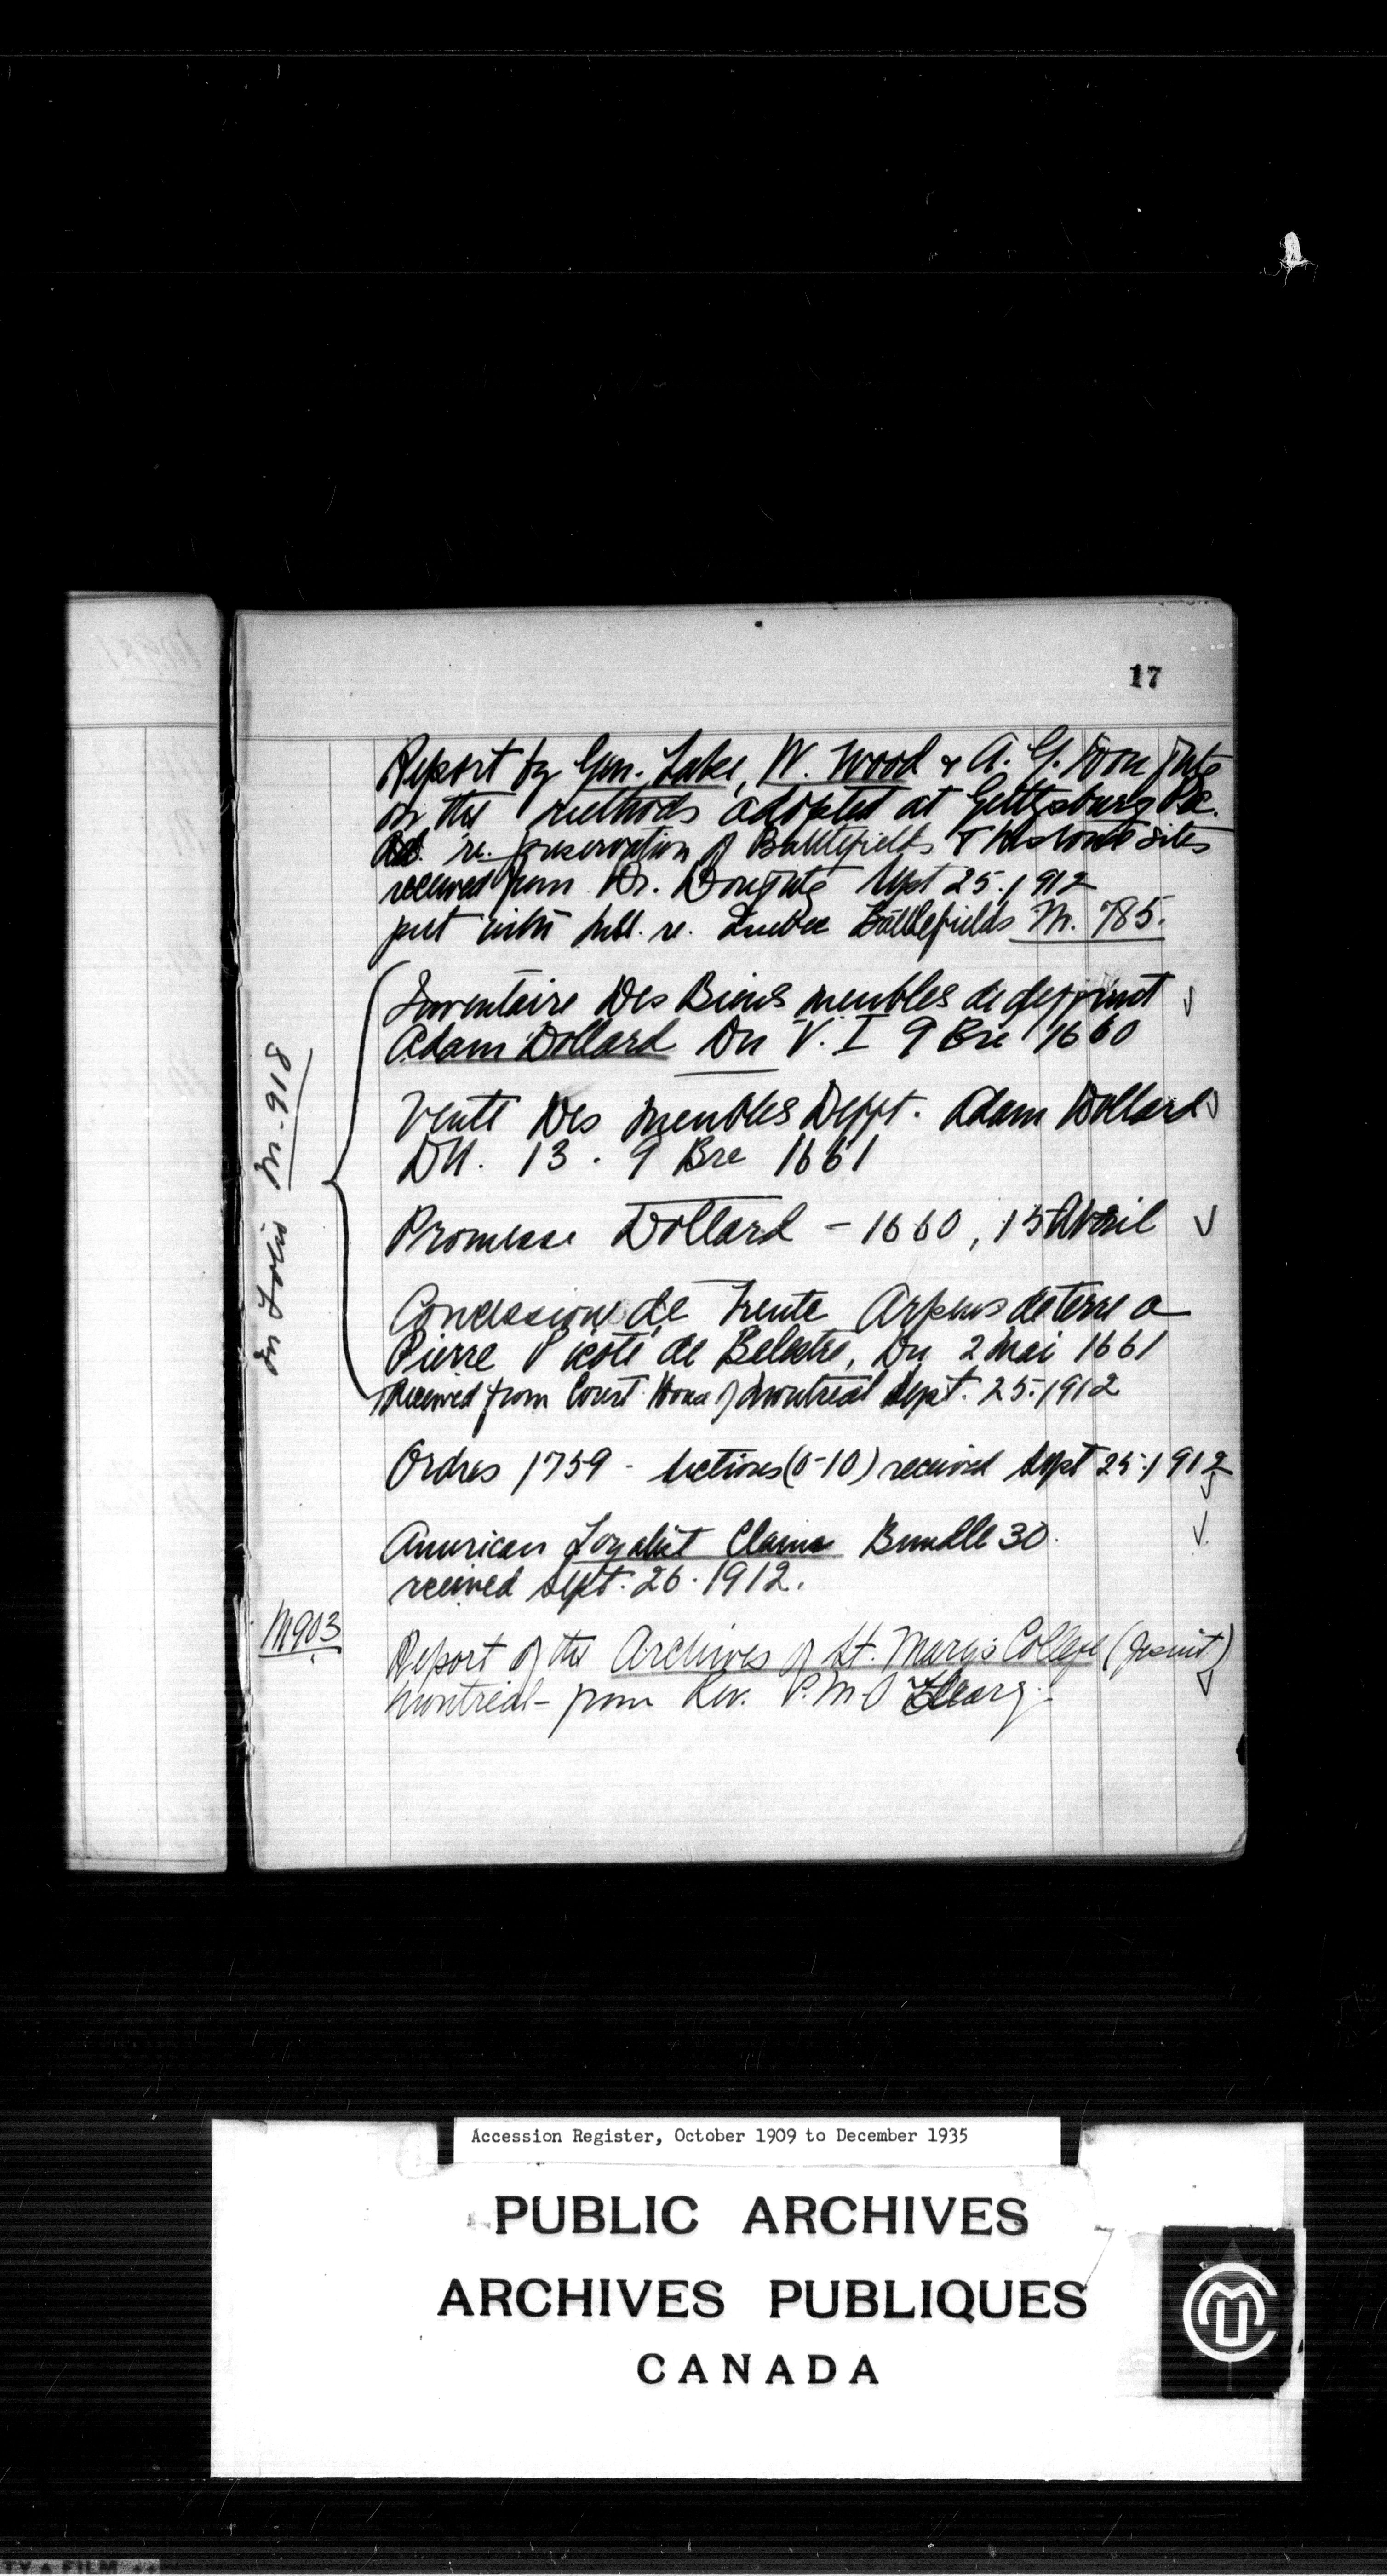 17
Report by Gen. Lake, W. Wood & A. G. Doughty
on the methods adopted at Gettysburg Pa.
re. preservation of Battlefields & Historic sites
received from Dr. Doughty Sept 25. 1912
put with publ. re. Quebec Battlefields M. 785.
In Folio M. 918
Inventaire Des Biens meubles de deffunt
Adam Dollard Du V. I 9 Bre 1660
Vente Des meubles Defft. Adam Dollard
DU. 13. 9 Bre 1661
Promesse Dollard - 1660, 15 Avril
Concession de trente Arpens de terre a
Pierre Picoté de Belestre, Du 2 Mai 1661
Received from Court House of Montreal Sept. 25. 1912
Ordres 1759 - Sections (5-10) received Sept 25. 1912
American Loyalist Claims Bundle 30.
received Sept. 26. 1912.
M903
Report of the Archives of St. Mary's College (Jesuit)
Montreal - from Rev. P. M. O'Leary.
Accession Register, October 1909 to December 1935
PUBLIC ARCHIVES
ARCHIVES PUBLIQUES
CANADA